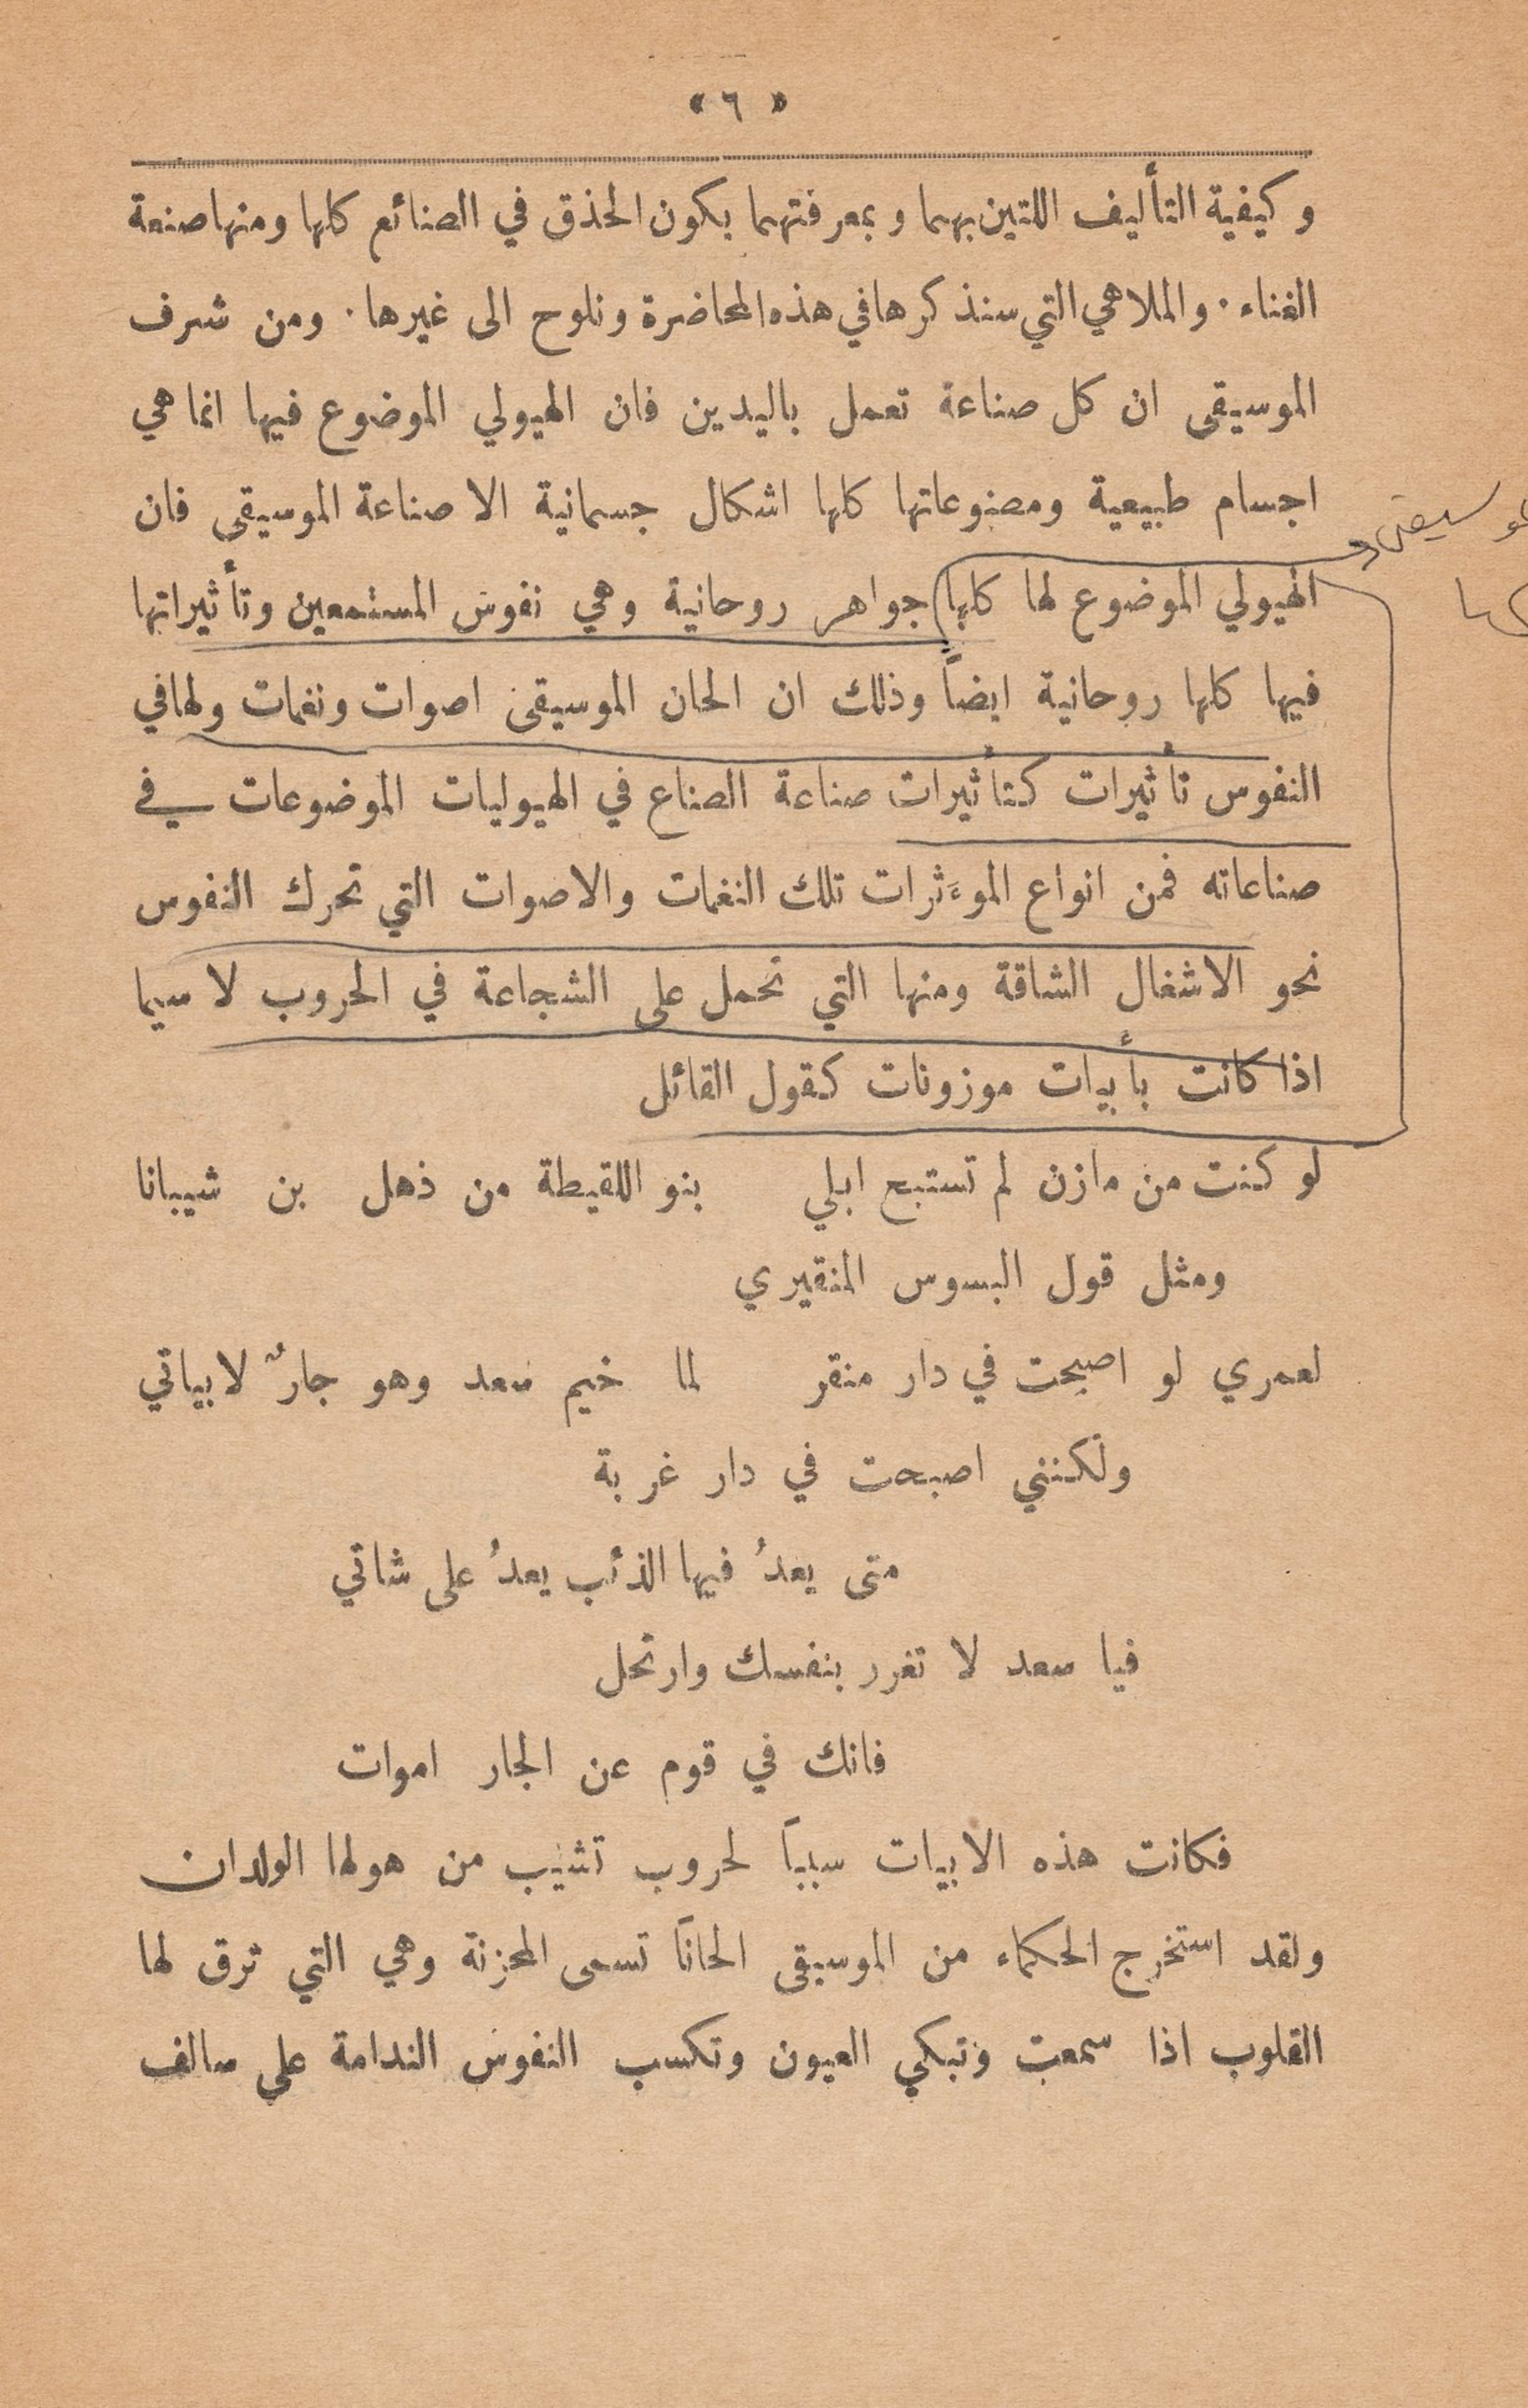 « ٦ »
وكيفية التأليف اللتين بهما وبمعرفتهما يكون الحذق في الصنائع كلها ومنها صنعة
الغناء. والملاهي التي سنذكرها في هذه المحاضرة ونلوح الى غيرها. ومن شرف
الموسيقى ان كل صناعة تعمل باليدين فان الهيولي الموضوع فيها انما هي
اجسام طبيعية ومصنوعاتها كلها اشكال جسمانية الا صناعة الموسيقى فان
الهيولي الموضوع لها كلها جواهر روحانية وهي نفوس المستمعين وتأثيراتها
فيها كلها روحانية ايضاً وذلك ان الحان الموسيقى اصوات ونغمات ولها في
النفوس تأثيرات كتأثيرات صناعة الصناع في الهيوليات الموضوعات في
صناعاته فمن انواع الموءَثرات تلك النغمات والاصوات التي تحرك النفوس
نحو الاشغال الشاقة ومنها التي تحمل على الشجاعة في الحروب لا سيما
اذا كانت بأبيات موزونات كقول القائل
لو كنت من مازن لم تستبح ابلي بنو اللقيطة من ذهل بن شيبانا
ومثل قول البسوس المنقيري
لعمري لو اصبحت في دار منقر لما خيم سعد وهو جارٌ لابياتي
ولكنني اصبحت في دار غربة
متى يعدُ فيها الذئب يعدُ على شاتي
فيا سعد لا تغرر بنفسك وارتحل
فانك في قوم عن الجار اموات
فكانت هذه الابيات سبباً لحروب تشيب من هولها الولدان
ولقد استخرج الحكماء من الموسيقى الحاناً تسمى المحزنة وهي التي ترق لها
القلوب اذا سمعت وتبكي العيون وتكسب النفوس الندامة على سالف